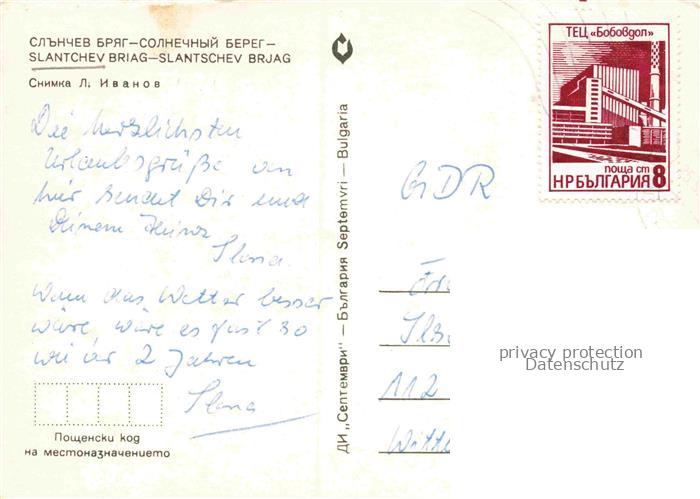 СЛЪНЧЕВ БРЯГ—СОЛНЕЧНЫЙ БЕРЕГ—
SLANTCHEV BRIAG—SLANTSCHEV BRJAG
Снимка Л. Иванов
Die herzlichsten
Urlaubsgrüße an
sendet Dir und
Deinem Heinz
Ilona.
Wenn das Wetter besser
wäre, wäre es fast so
wie vor 2 Jahren
Ilona
Пощенски код
на местоназначението
ДИ „Септември" — България Septemvri — Bulgaria
ТЕЦ «Бобовдол»
поща ст
НРБЪЛГАРИЯ 8
GDR
112
privacy protection
Datenschutz